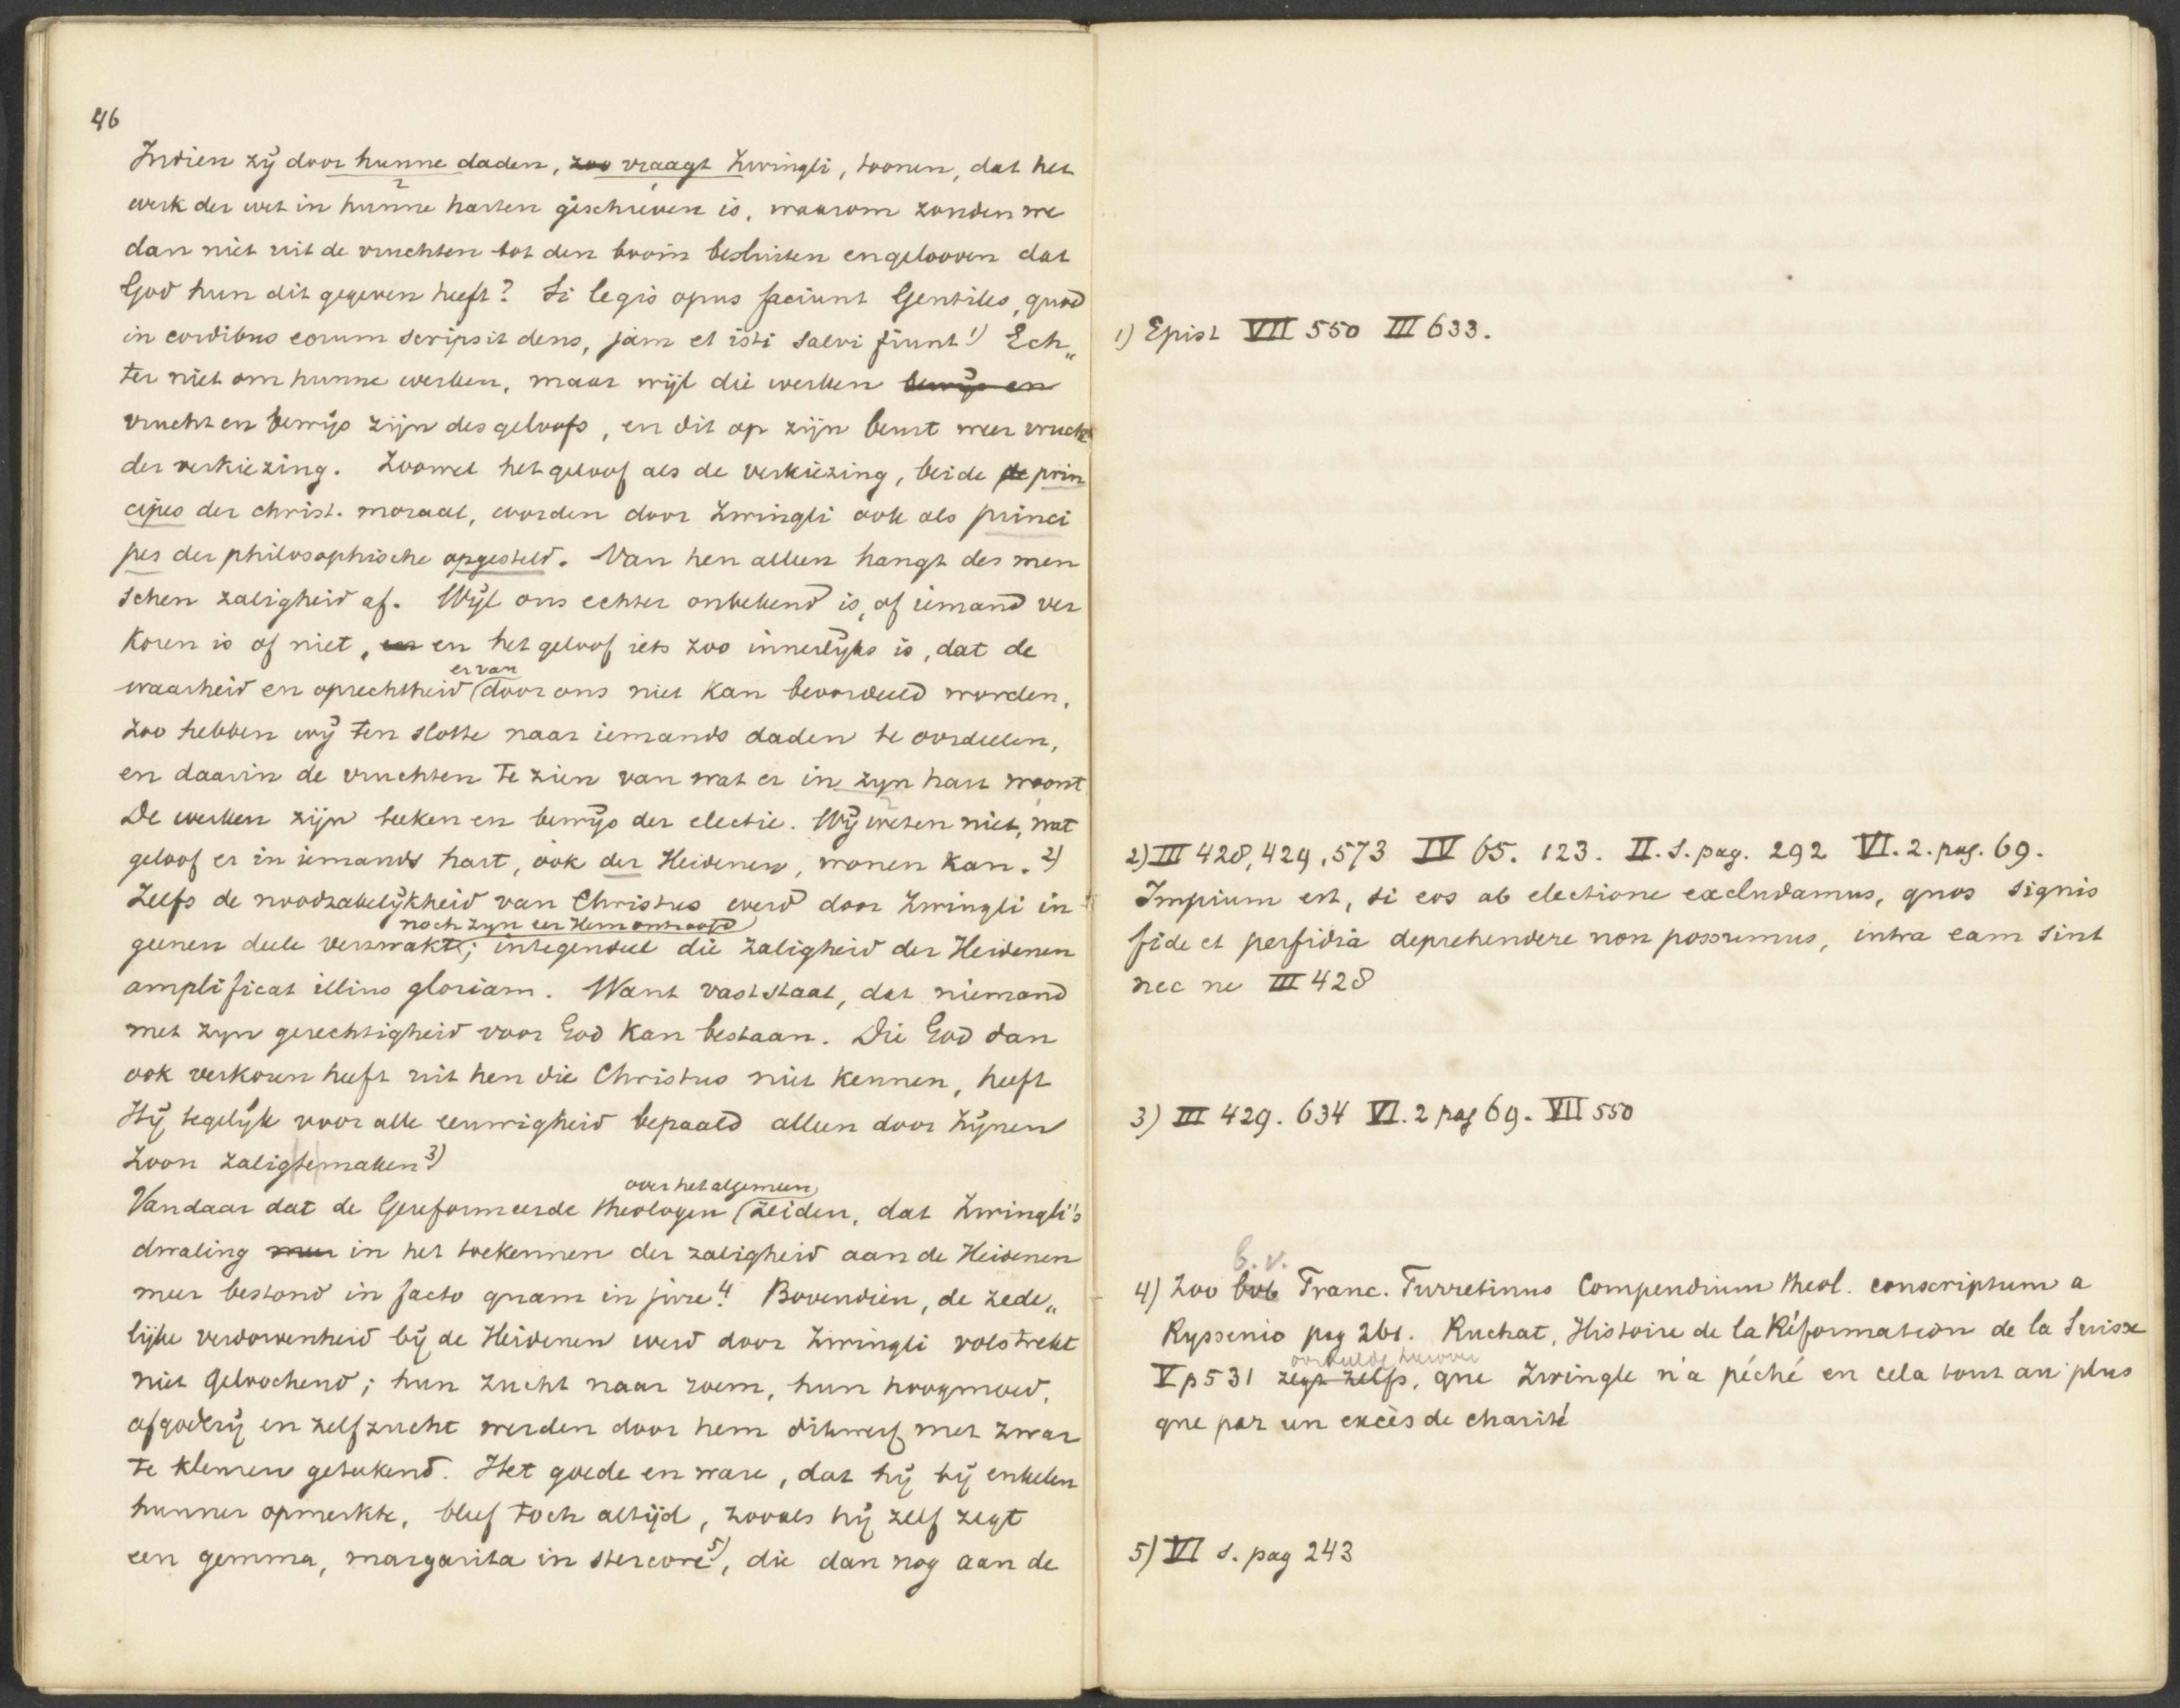 46
Indien zij door hunne daden, zoo vraagt Zwingli, toonen, dat het
werk der wet in hunne harten geschreven is, waarom zouden we
dan niet uit de vruchten tot den boom besluiten en gelooven dat
God hun dit gegeven heeft? Si legis opus faciunt Gentiles, quod
in cordibus eorum scripsit deus, jam et isti salvi fiunt 1) Ech„
ter niet om hunne werken, maar wijl die werken bewijs en
vrucht en bewijs zijn des geloofs, en dit op zijn beurt weer vrucht
der verkiezing. Zoowel het geloof als de verkiezing, beide de prin
cipes der christ. moraal, worden door Zwingli ook als princi
pes der philosophische opgesteld. Van hen alleen hangt des men
schen zaligheid af. Wijl ons echter onbekend is, of iemand ver
koren is of niet, en en het geloof iets zoo innerlijks is, dat de
er van
waarheid en oprechtheid door ons niet kan beoordeeld worden,
zoo hebben wij ten slotte naar iemands daden te oordeelen,
en daarin de vruchten te zien van wat er in zijn hart woont
De werken zijn teeken en bewijs der electie. Wij weten niet, wat
geloof er in iemands hart, ook der Heidenen, wonen kan. 2)
Zelfs de noodzakelijkheid van Christus werd door Zwingli in
noch zijn eer Hem ontroofd
geenen deele verzwakt; integendeel die zaligheid der Heidenen
amplificat illius gloriam. Want vast staat, dat niemand
met zijn gerechtigheid voor God kan bestaan. Die God dan
ook verkoren heeft uit hen die Christus niet kennen, heeft
Hij tegelijk voor alle eeuwigheid bepaald alleen door Zijnen
Zoon zalig te maken 3)
over het algemeen
Vandaar dat de Gereformeerde theologen zeiden, dat Zwingli's
dwaling meer in het toekennen der zaligheid aan de Heidenen
meer bestond in facto quam in jure. 4 Bovendien, de zede„
lijke verdorvenheid bij de Heidenen werd door Zwingli volstrekt
niet geloochend; hun zucht naar roem, hun hoogmoed,
afgoderij en zelfzucht werden door hem dikwerf met zwar
te kleuren geteekend. Het goede en ware, dat hij bij enkelen
hunner opmerkte, bleef toch altijd, zooals hij zelf zegt
een gemma, margarita in stercore 5), die dan nog aan de
1) Epist VII 550 III 633.
2) III 428, 429, 573 IV 65. 123. II. S. pag. 292 VI. 2. pag. 69.
Impium est, si eos ab electione excludamus, quos signis
fide et perfidia deprehendere non possumus, intra eam sint
nec ne III 428
3) III 429. 634 VI. 2 pag 69. VII 550
b.v.
4) Zoo Franc. Turretinus Compendium theol. conscriptum a
Ryssenio pag 261. Ruchat, Histoire de la Réformation de la Suisse
oordeelde hierover
V p 531 zegt zelfs, que Zwingle n'a péché en cela tout au plus
que par un excès de charité
5) VI S. pag 243